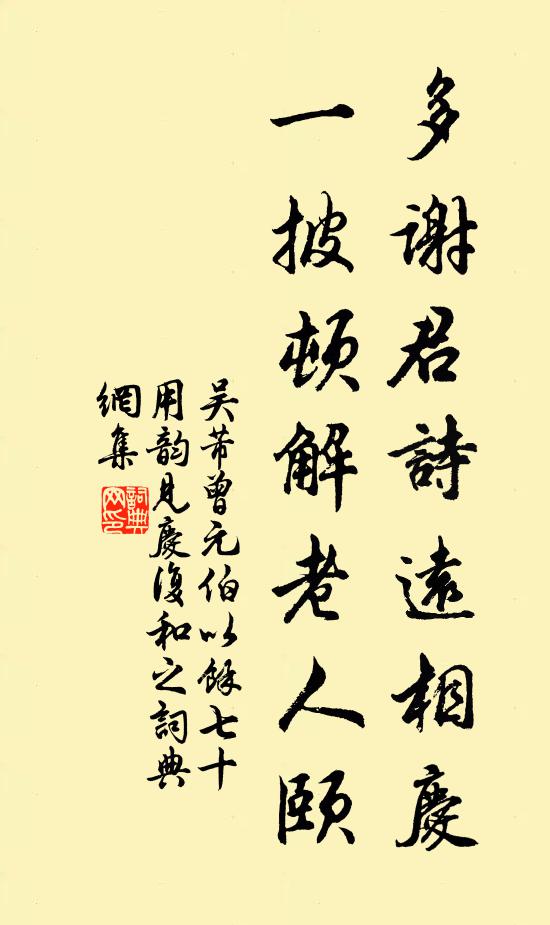 多謝君詩遠相慶
一披頓解老人頤
吳芾曾元伯以餘七十
用韵見慶復和之詞典
網集
詞典
网印